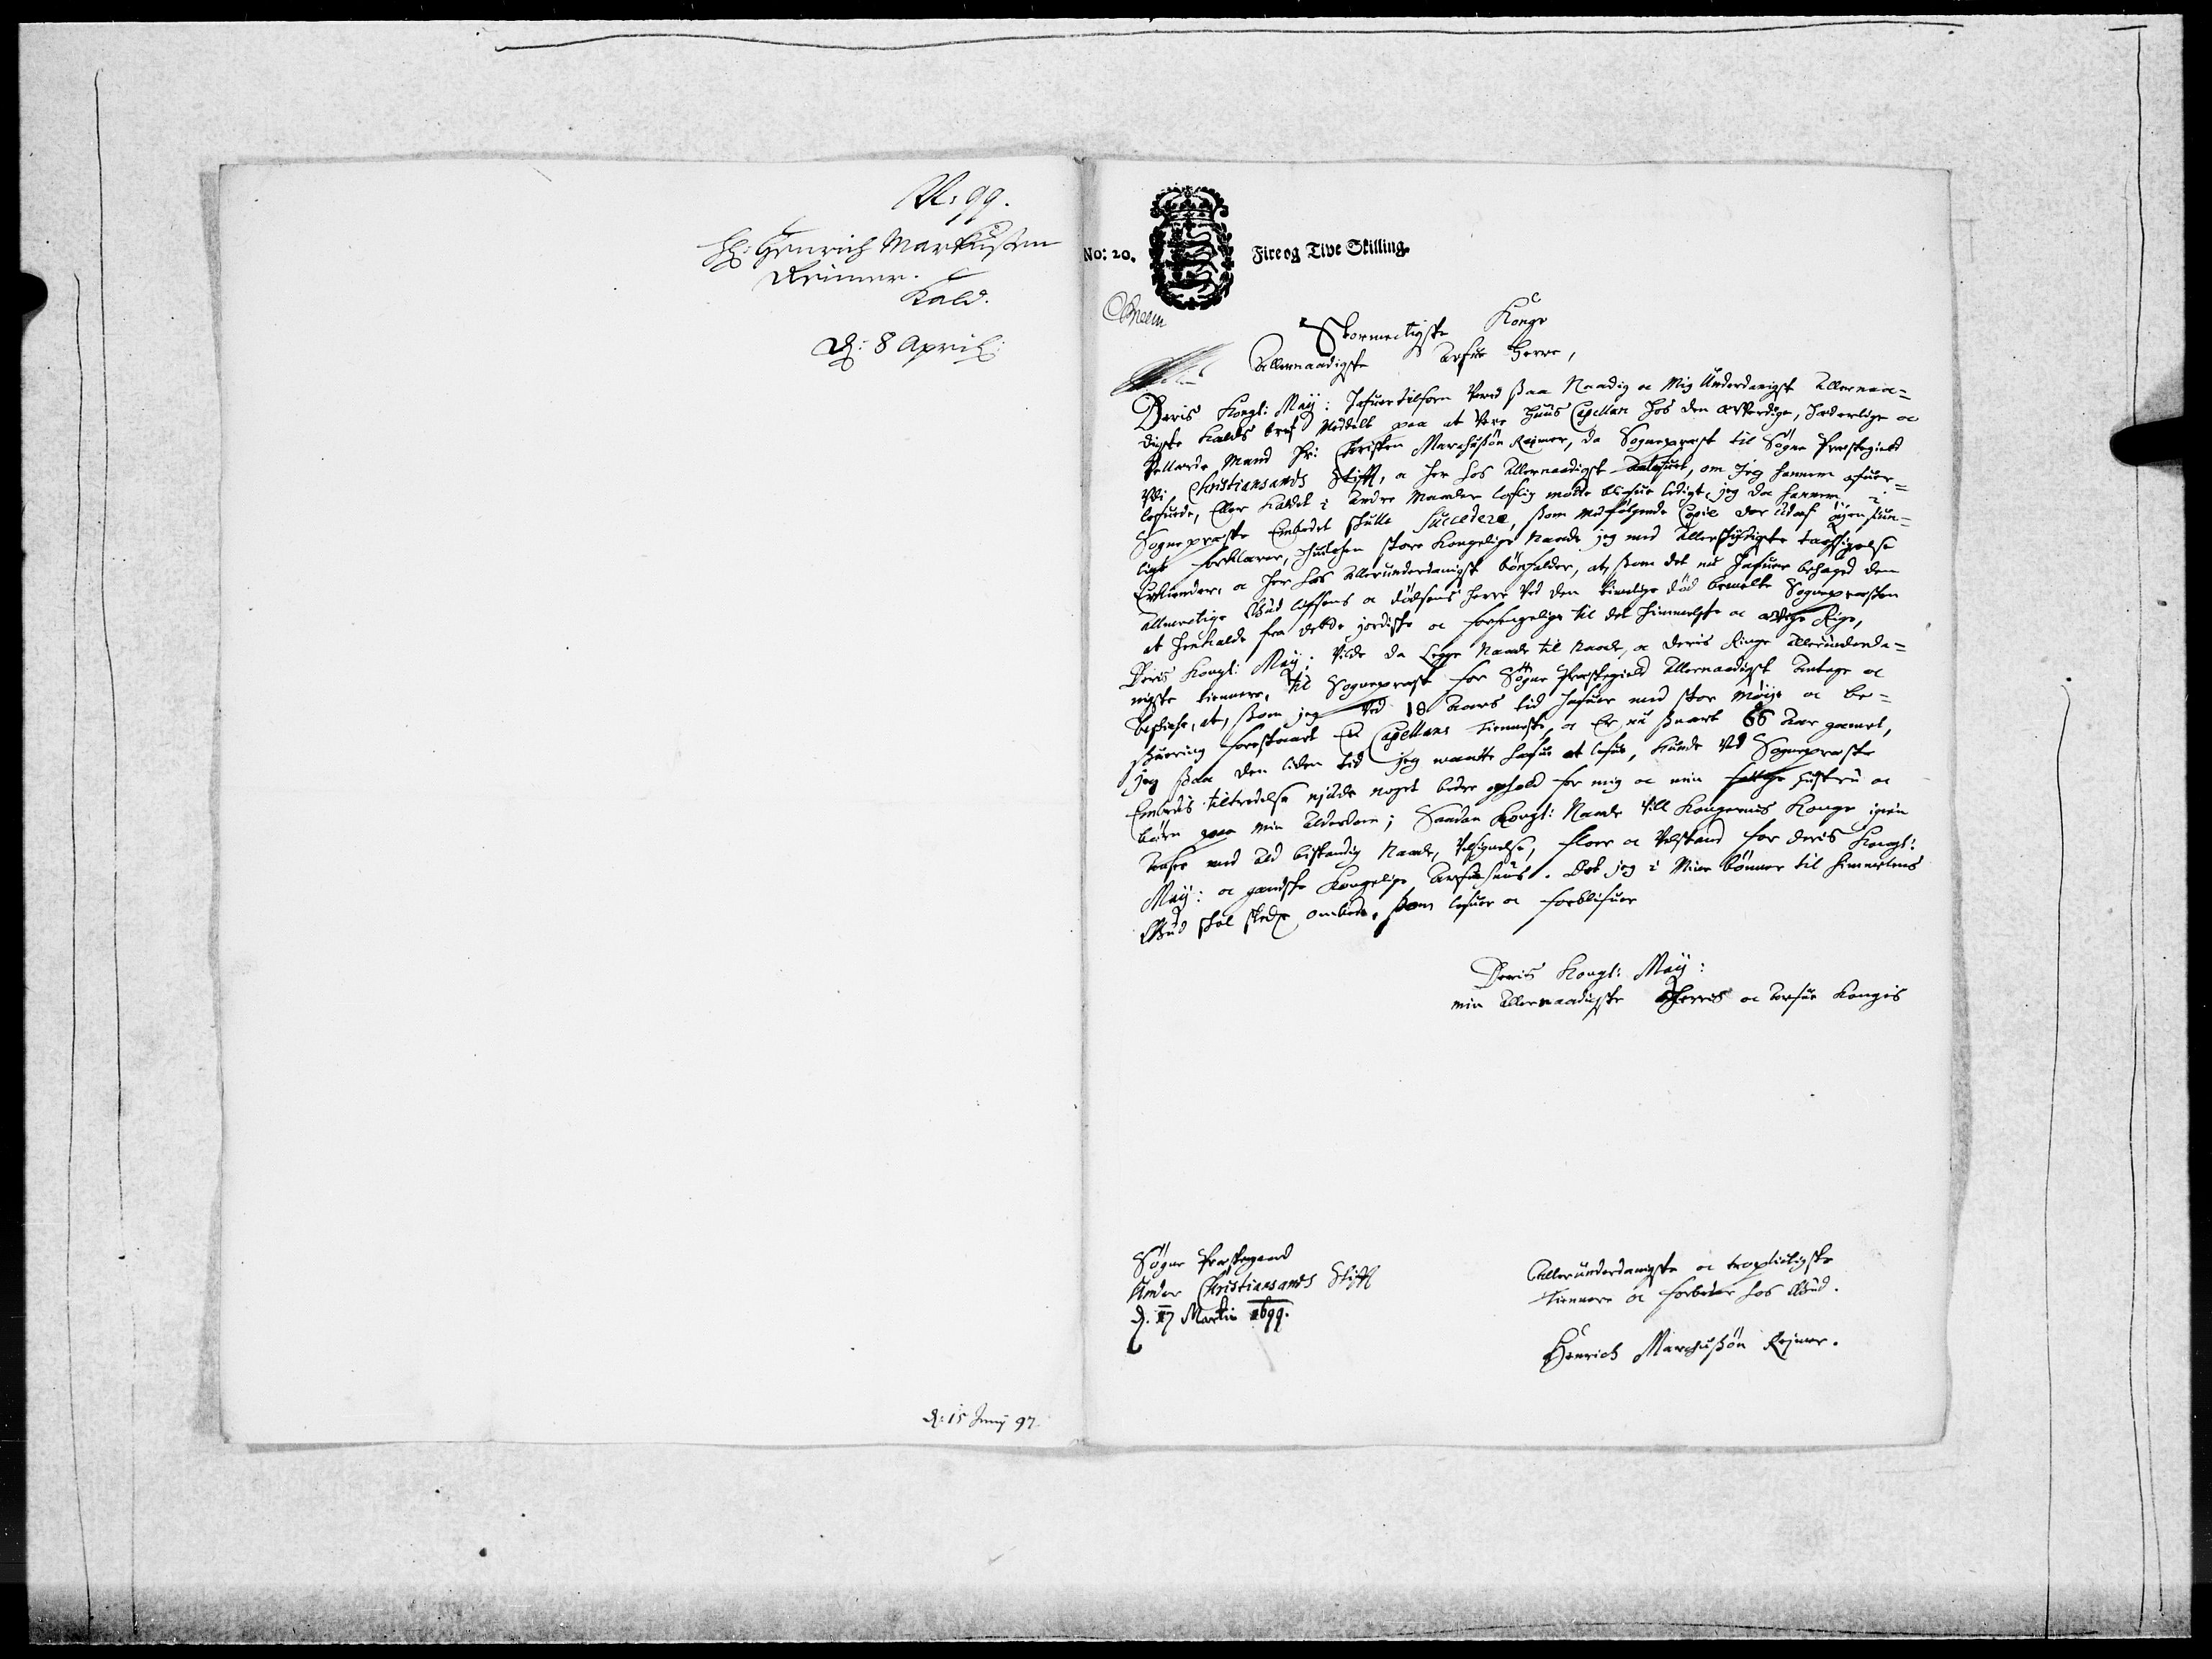 No. 99.
Hr: Henrich Markusßen
Reimer.
Kald.
D: 8 April:
d: 15 Junij 97.
No: 20. Fire og Tive Skilling
Stormectigste Konge
Allernaadigste Arfue Herre,
Deris Kongl: May: hafuer tilforn verit ßaa Naadig oc Mig Underdanigst Allernaa-
digste Kalds bref Meddelt paa at vere Huus Capellan hos den Ærverdige, Hæderlige oc
Vellærde Mand Hr: Christen Marchußøn Reimer, da Sognepræst til Søgne Præstegield
Udi Christiansands Stifft, oc her hos Allernaadigst, om Jeg hannem ofuer-
lefuede, Eller Kaldet i andre Maader lofflig motte blifue ledigt, jeg da hannem i
Sognepræste Embedet skulle Succedere, ßom medfølgende Copie der udaf øyensiun-
ligt forklarer, huilchen store Kongelige Naade jeg med Allerskyldigste tacksigelse
Erkiender, oc her hos Allerunderdanigst bønfalder, at, ßom det nu hafuer behaget den
Allmectige Gud lifsens oc dødsens Herre ved den timelige død bemelte Sognepræsten
at henkalde fra dette jordiske oc forfengelige til det himmelske oc Ævige Rige,
Deris Kongl: May: vilde da legge Naade til Naade, oc deris Ringe Allerunderda-
nigste tienere, til Sognepræst for Søgne Præstegield Allernaadigst Antage oc
beskicke, at, ßom jeg ved 18 Aars tid hafuer med stor Møye oc be-
suering forestaaet En Capellans tienneste, oc Er nu snart 66 Aar gamel,
jeg ßaa den liden tid jeg maatte hafue at lefue, kunde ved Sognepræste
Embedis tiltredelse nyde noget bedre ophold for mig oc min fattige hustru oc
børn paa min Alderdom; Saadan Kongl: Naade vill Kongernes Konge igien
med Ald bestandig Naade, Velsignelse, floer oc Velstand for deris Kongl:
May: oc gandske Kongelige Arfuehuus. Det jeg i Mine bønner til himmelens
Gud skal stedze ombede, ßom lefuer oc forblifuer
Deris Kongl: May:
min Allernaadigste Herris oc Arfue Kongis
Søgne Præstegaard
Under Christiansands Stifft
d. 17 Martii 1699.
Allerunderdanigste oc tropligtigste
tiennere oc forbeder hos Gud.
Henrich Marchußøn Reimer.